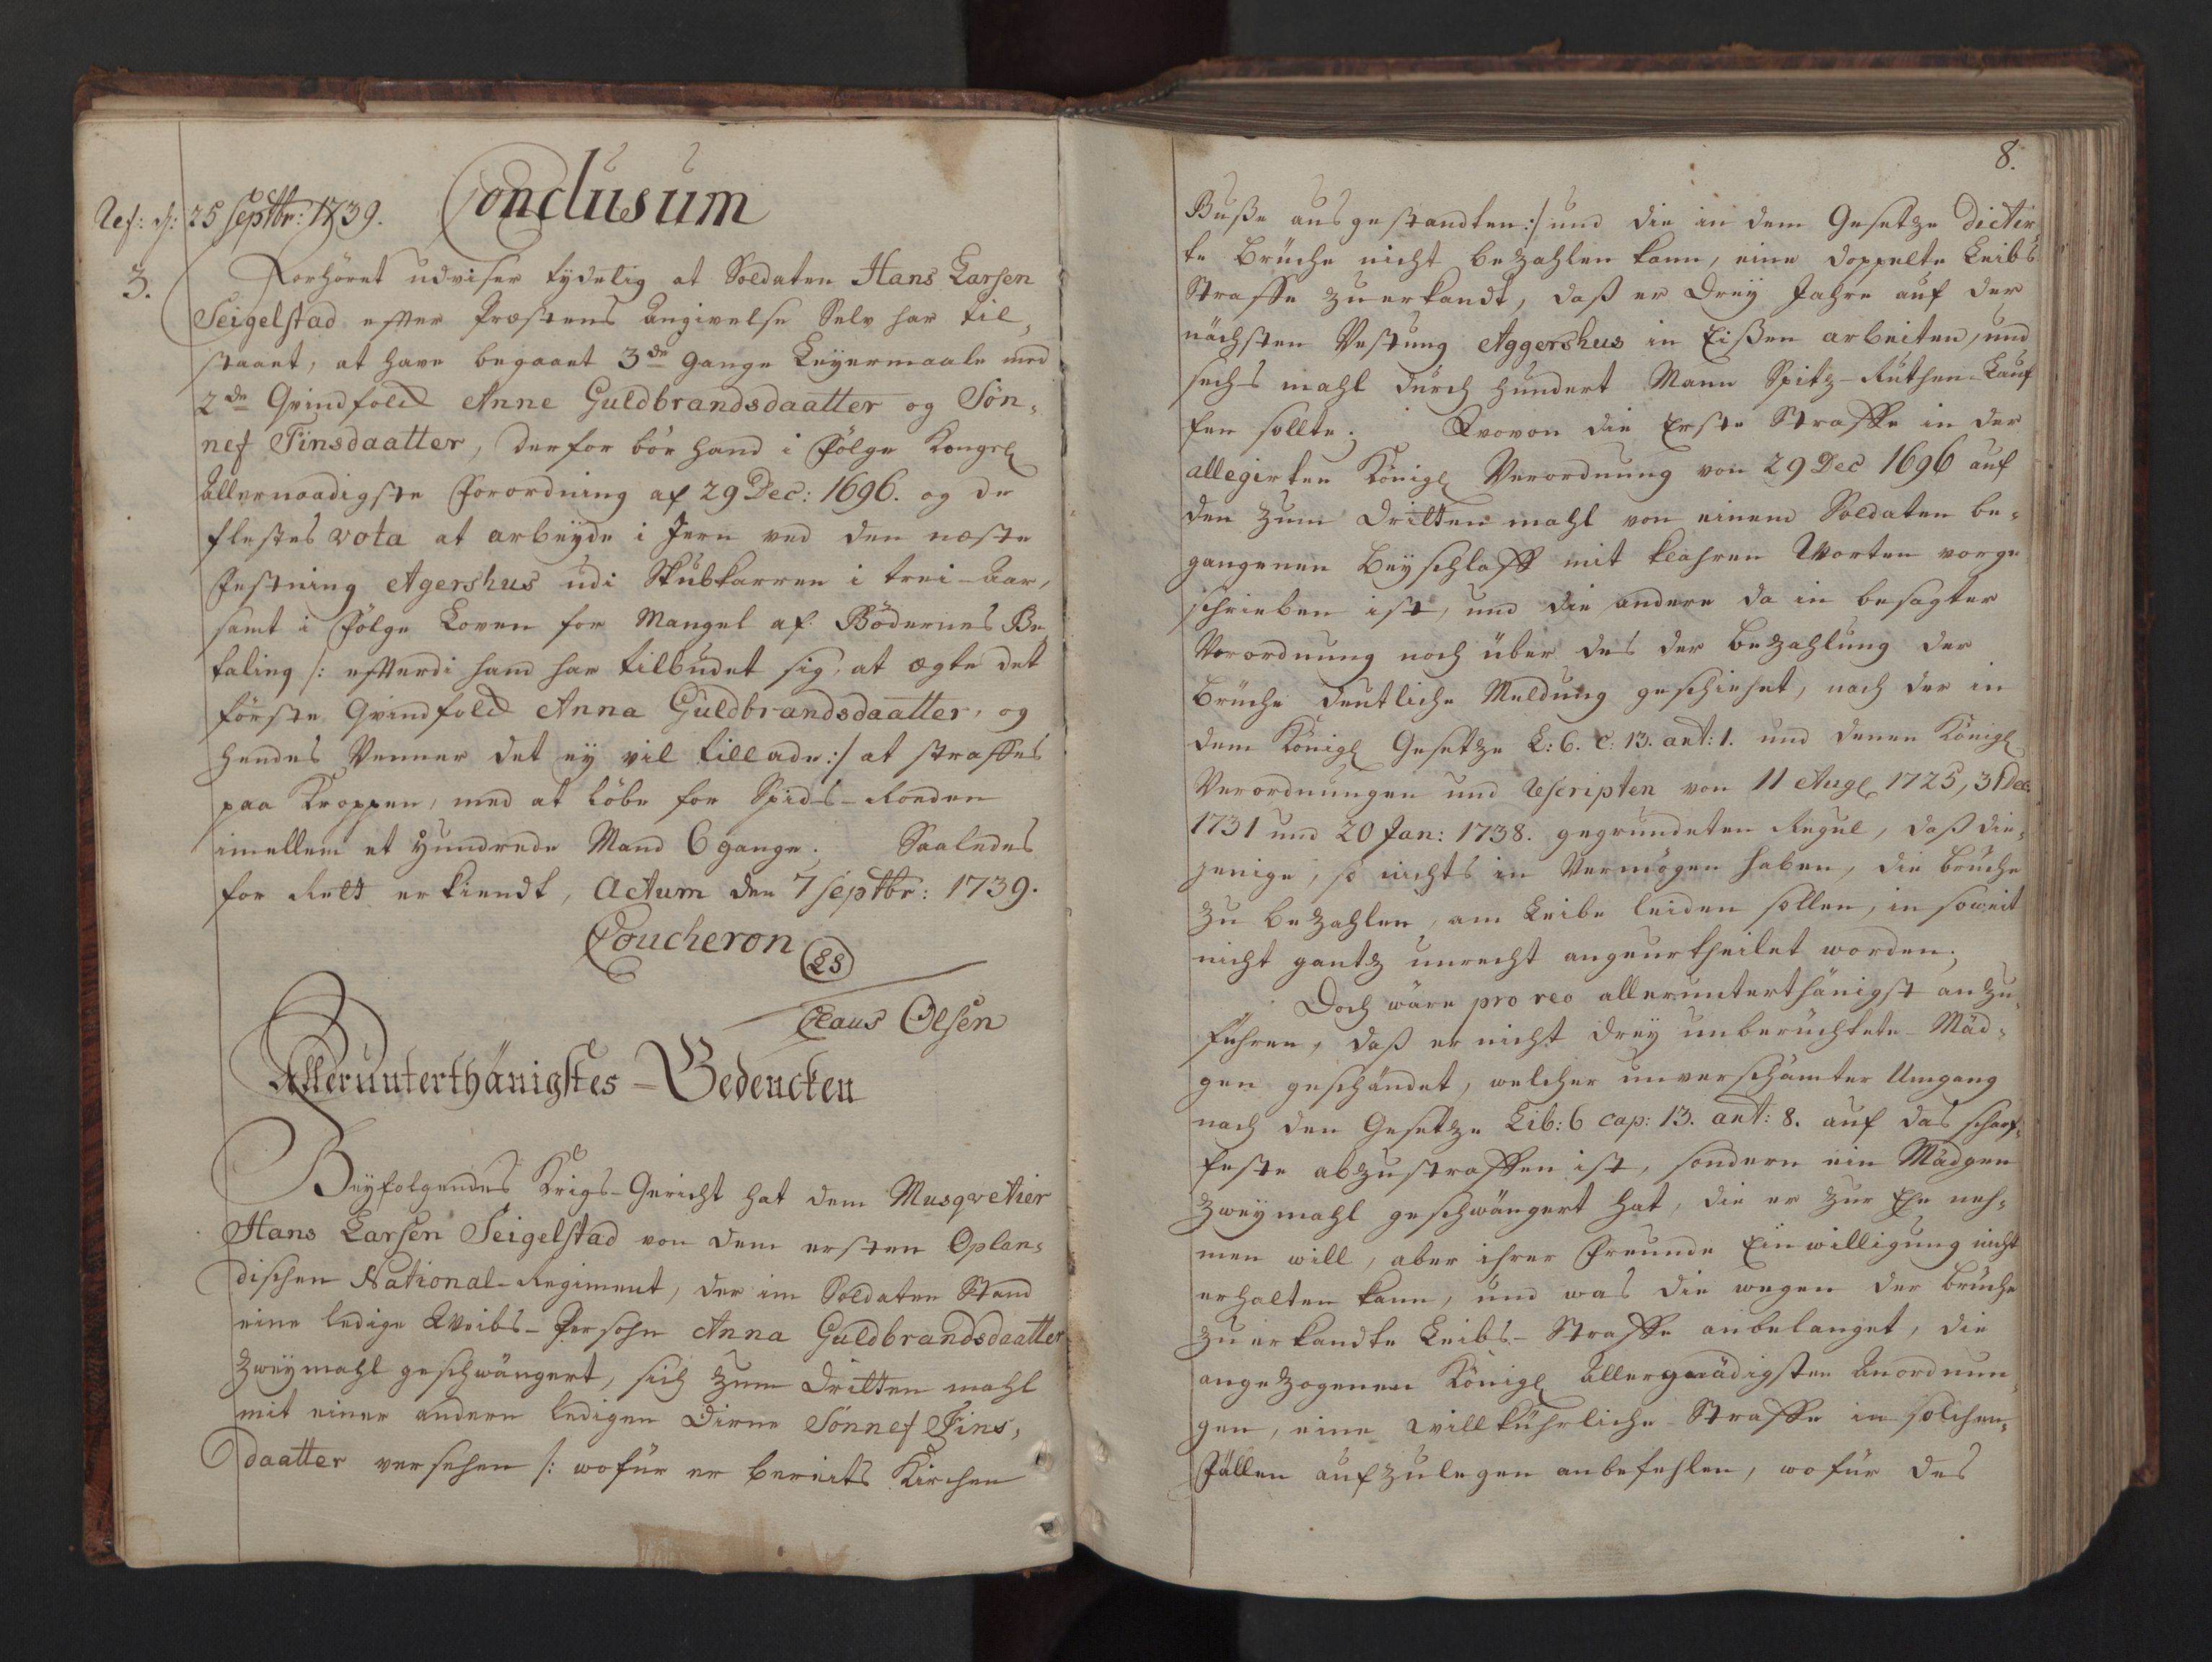 Conclusum
Ref: d: 25 Septbr: 1739.
3.
Forhöret udviser tydelig at Soldaten Hans Larsen
Seigelstad efter Præstens Angivelse Selv har til-
staaet, at have begaaet 3de gange Leyermaale med
2de Qvindfolck Anne Guldbrandsdaatter og Sön-
nef Finsdaatter, derfor bör hand i Fölge Kongel
Allernaadigste Forordning af 29 Dec: 1696. og de
flestes vota at arbeyde i Jern ved den næste
Festning Agershus udi Skubkarren i trei-Aar,
samt i Fölge Loven for Mangel af Bödernes Be-
taling /: efterdi hand har tilbudet sig, at ægte det
förste Qvindfolck Anna Guldbrandsdaatter, og
hendes Venner det ey vil tillade :/ at straffes
paa Kroppen, med at löbe for Spids-Roeden
imellem et Hundrede Mand 6 gange. Saaledes
for Rett erkiendt, Actum den 7 Septbr: 1739.
Coucheron LS
Claus Olsen
Allerunterthänigstes-Bedencken
Beyfolgendes Krigs-Gericht hat dem Musqvetier
Hans Larsen Seigelstad von dem ersten Oplan-
dischen National-Regiment, der im Soldaten Stand
eine ledige Weibs-Persohn Anna Guldbrandsdaatter
zweymahl geschwängert, sich zum dritten mahl
mit einer andern ledigen Dirne Sönnef Fins-
daatter versehen /: wofür er bereits Kirchen
8.
Buße ausgestandten :/ und die in dem Gesetze dictir
te Brüche nicht bezahlen kann, eine doppelte Leibs
Straffe zuerkandt, daß er drey Jahre auf der
nächsten Vestung Aggershus in Eißen arbeiten, und
sechs mahl durch hundert Mann Spitz-Ruthen-Lauf
fen sollte. Wovon die Erste Straffe in der
allegirten Königl Verordnung von 29 Dec 1696 auf
den zum dritten mahl von einem Soldaten be-
gangenen Beyschlaff mit klahren Worten vorge
schrieben ist, und die andere da in besagter
Verordnung noch über des der Bezahlung der
Brüche deutliche Meldung geschiehet, nach der in
dem Königl Gesetze L: 6. C: 13. art: 1. und denen Königl
Verordnungen und Rescripten von 11 Augl 1725, 31 Dec.
1731 und 20 Jan: 1738. gegründeten Regul, daß die-
jenige, so nichts in Vermögen haben, die Brüche
zu bezahlen, am Leibe leiden sollen, in soweit
nicht gantz unrecht angeurtheilet worden.
Doch wäre pro reo allerunterthänigst anzu-
führen, daß er nicht drey unberüchtete Mäd-
gen geschändet, welcher unverschämter Umgang
nach den Gesetze Lib: 6 cap: 13. art: 8. auf das schärf-
feste abzustraffen ist, sondern ein Mädgen
zweymahl geschwängert hat, die er zur Ehe neh-
men will, aber ihrer Freunde Einwilligung nicht
erhalten kann, und was die wegen der Brüche
zuerkandte Leibs-Straffe anbelanget, die
angezogenen Königl Allergnädigsten Anordnun-
gen, eine willkührliche Straffe in solchen-
Fällen aufzulegen anbefehlen, wofür des